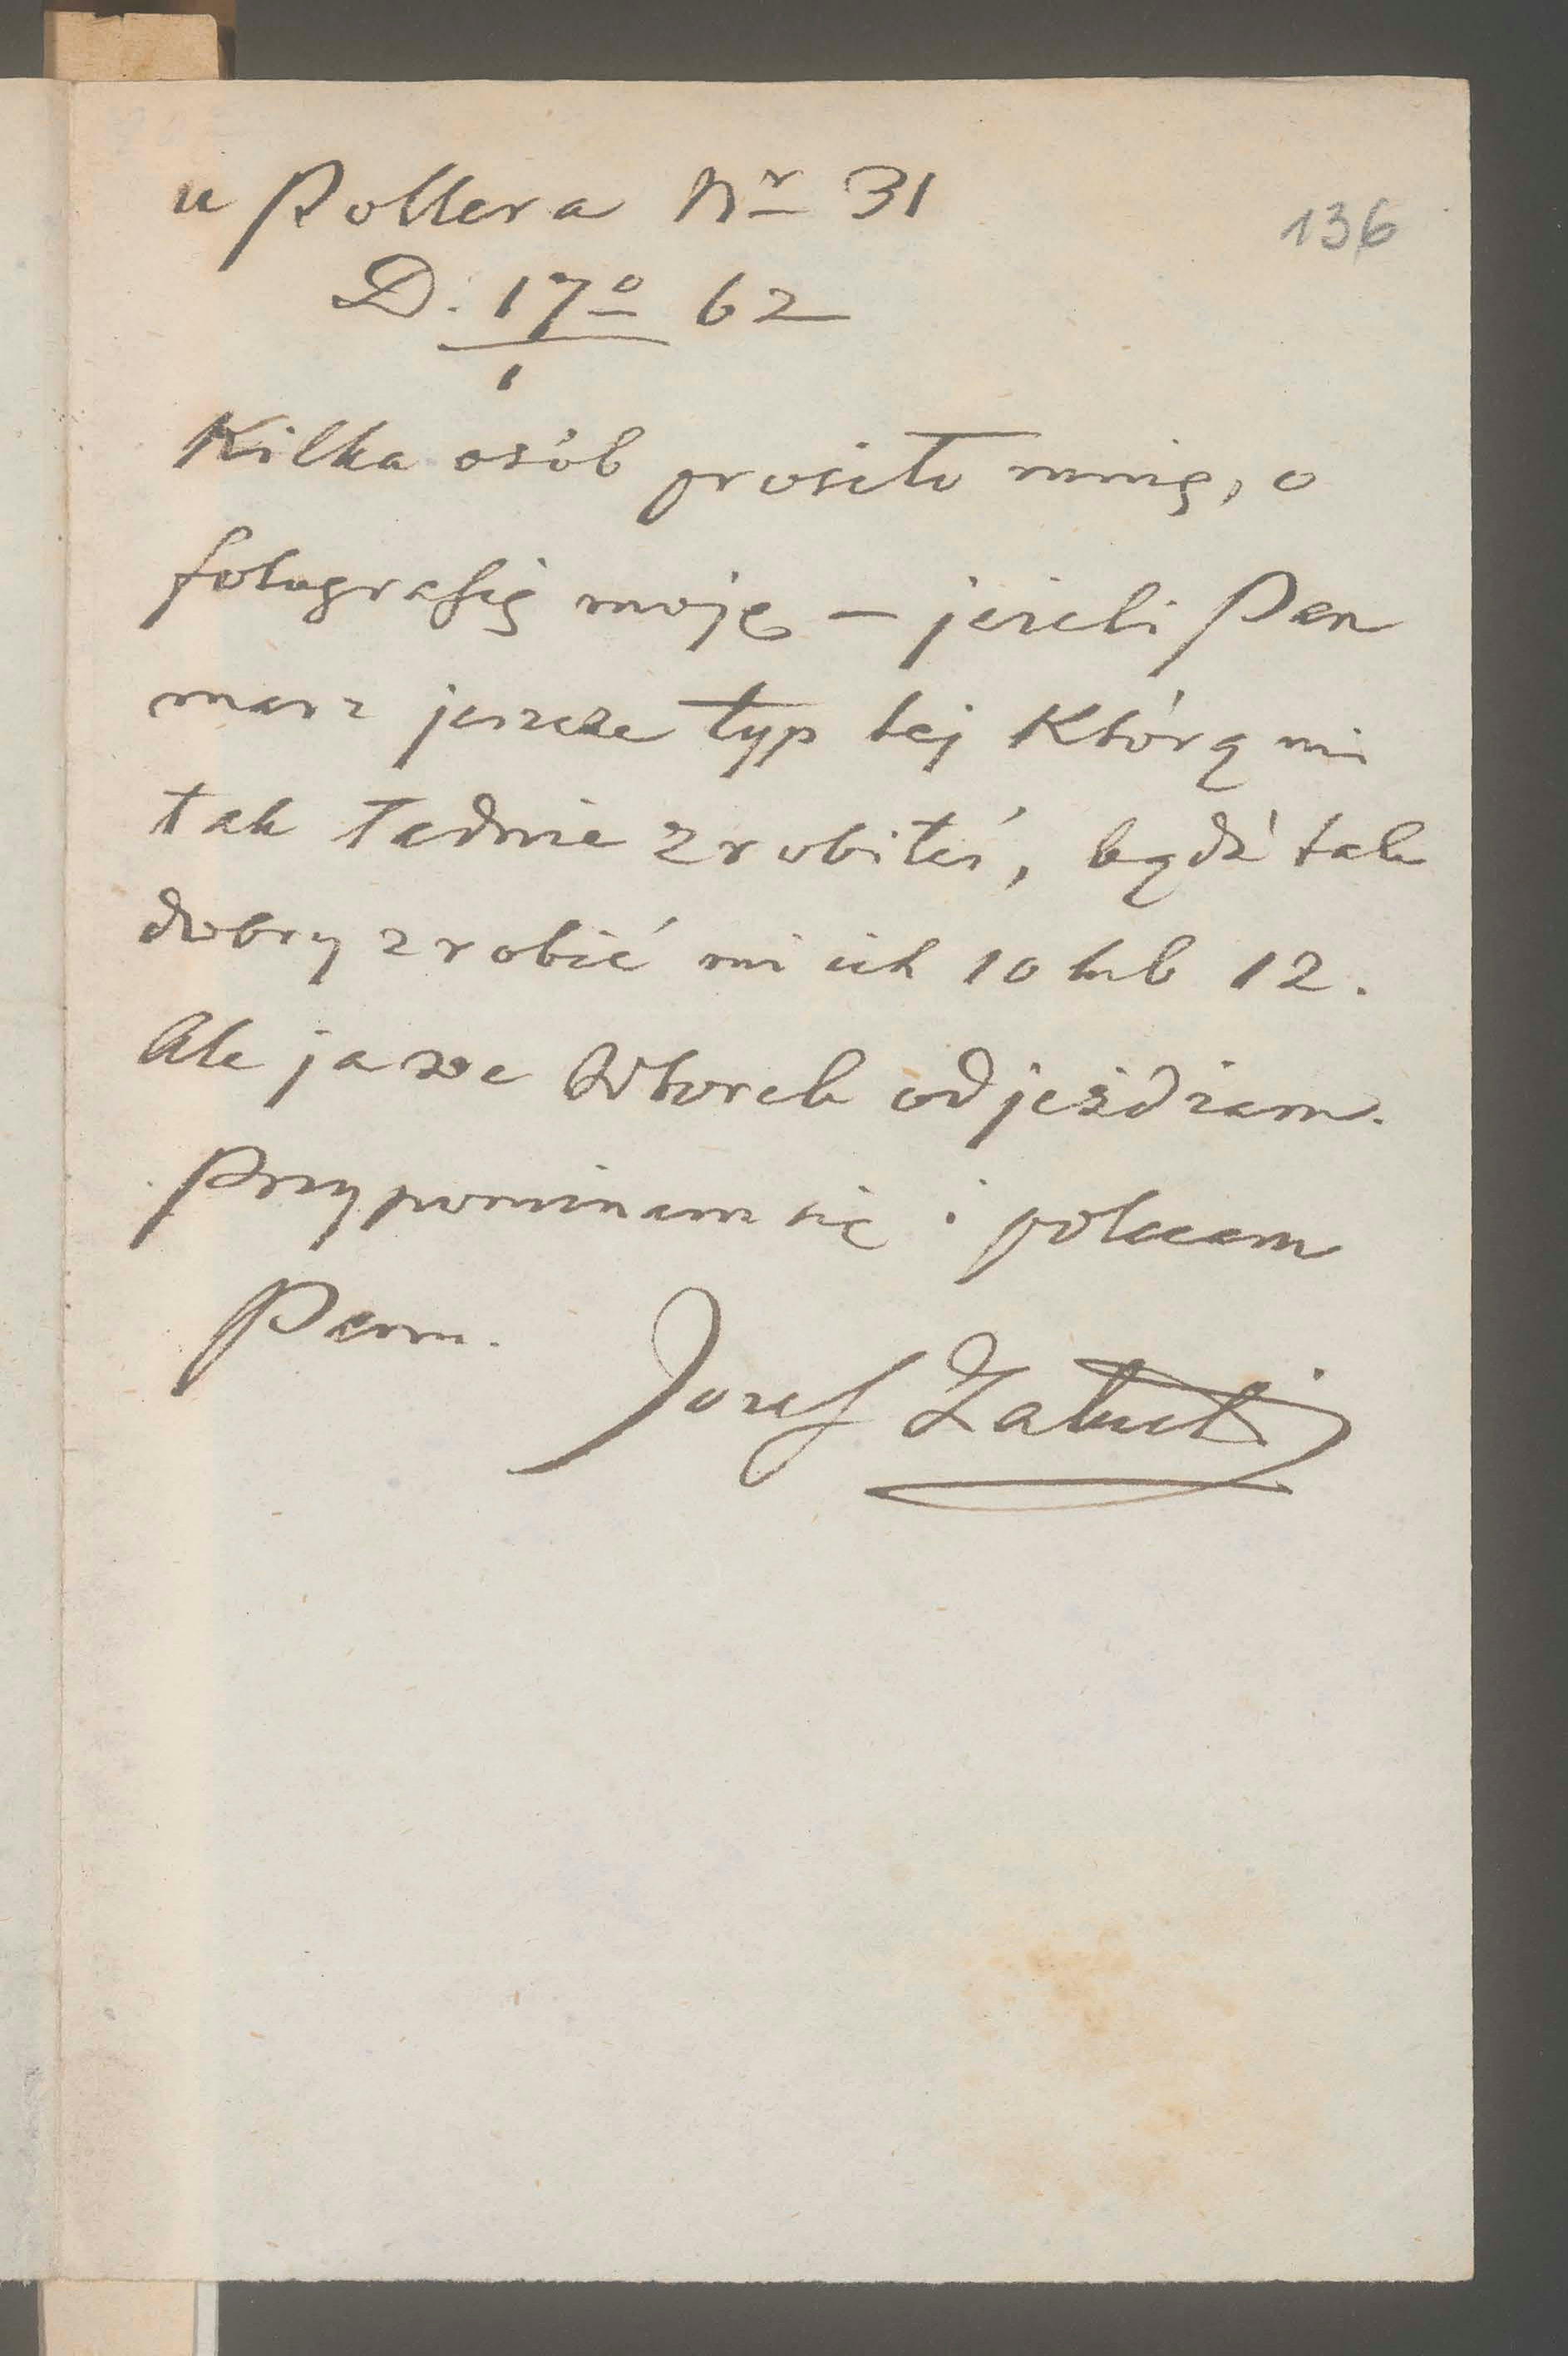 u Pollera Nr 31
136
D. 17º 62
1
Kilka osób prosiło mnię, o
fotografię moję — jeżeli Pan
masz jeszcze typ tej którą mi
tak ładnie zrobiłeś, bądź tak
dobry zrobić mi ich 10 lub 12.
Ale ja we Wtorek odjeżdżam.
Przypominam się i polecam
Panu.
Jozef Załuski